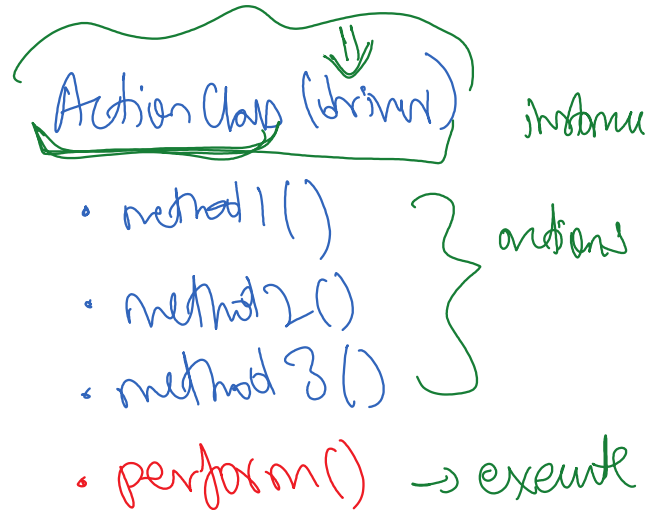 Action Class (driver) instance
• method1()
actions
• method2()
• method3()
• perform() → execute